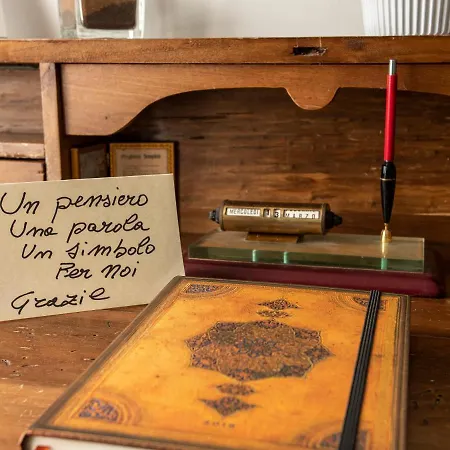 Un pensiero
Una parola
Un simbolo
Per noi
Grazie
MERCOLEDI 13 MARZO